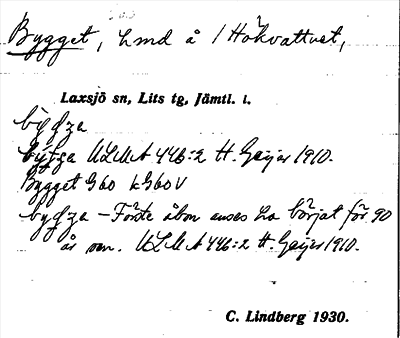 Bygget, hmd å / Hökvattnet,
Laxsjö sn, Lits tg, Jämtl. l.
byǥʒa
býgga ULMA 446:2 H. Geijer 1910.
Bygget G60 kG60V
byǥʒa – Förste åbon anses ha börjat för 90
år sen. ULMA 446:2 H. Geijer 1910.
C. Lindberg 1930.